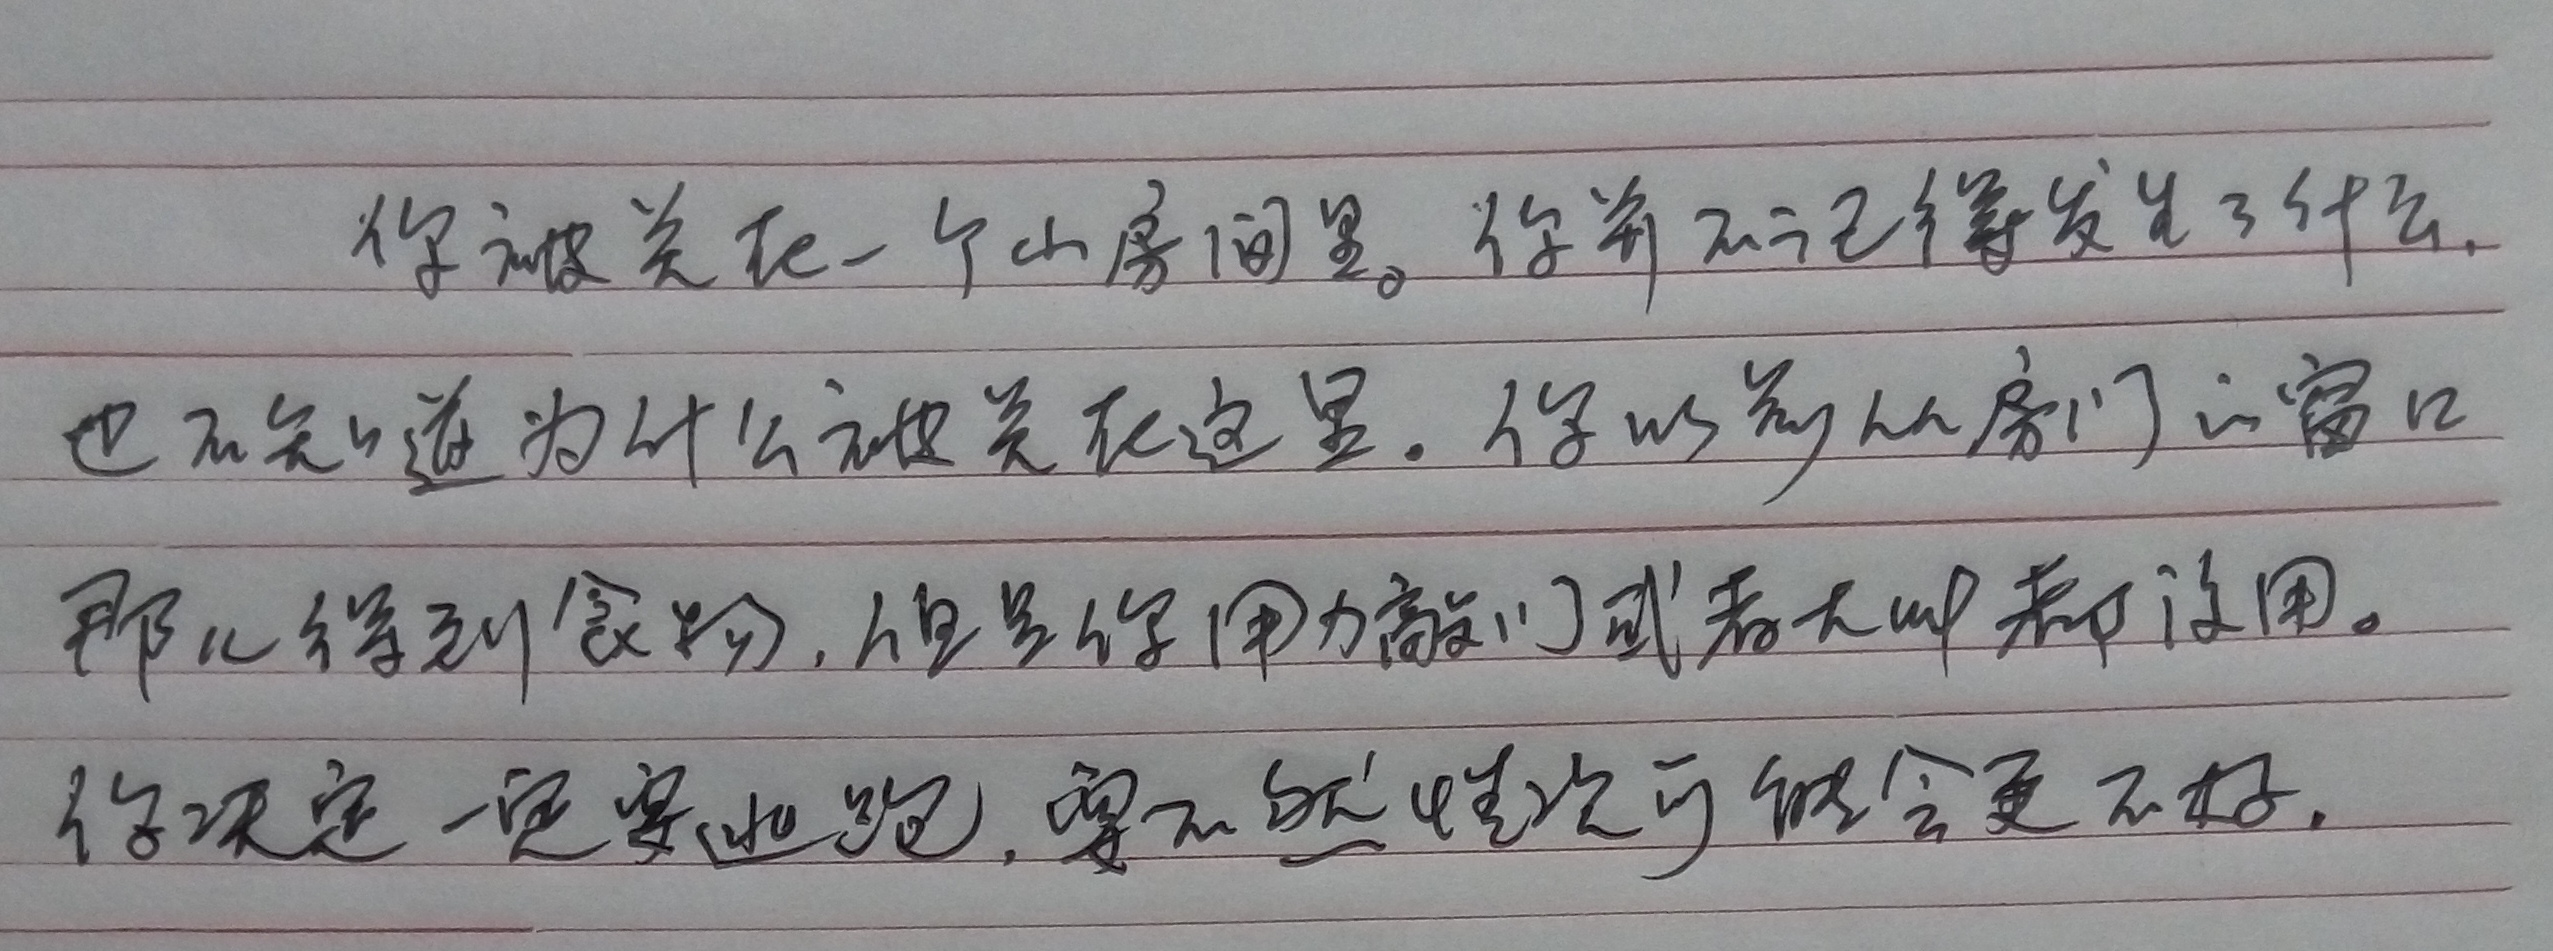 你被关在一个小房间里。你并不记得发生了什么，
也不知道为什么被关在这里。你以前从房门的窗口
那儿得到食物，但是你用力敲门或者大叫都没用。
你决定一定要逃跑，要不然情况可能会更不好。